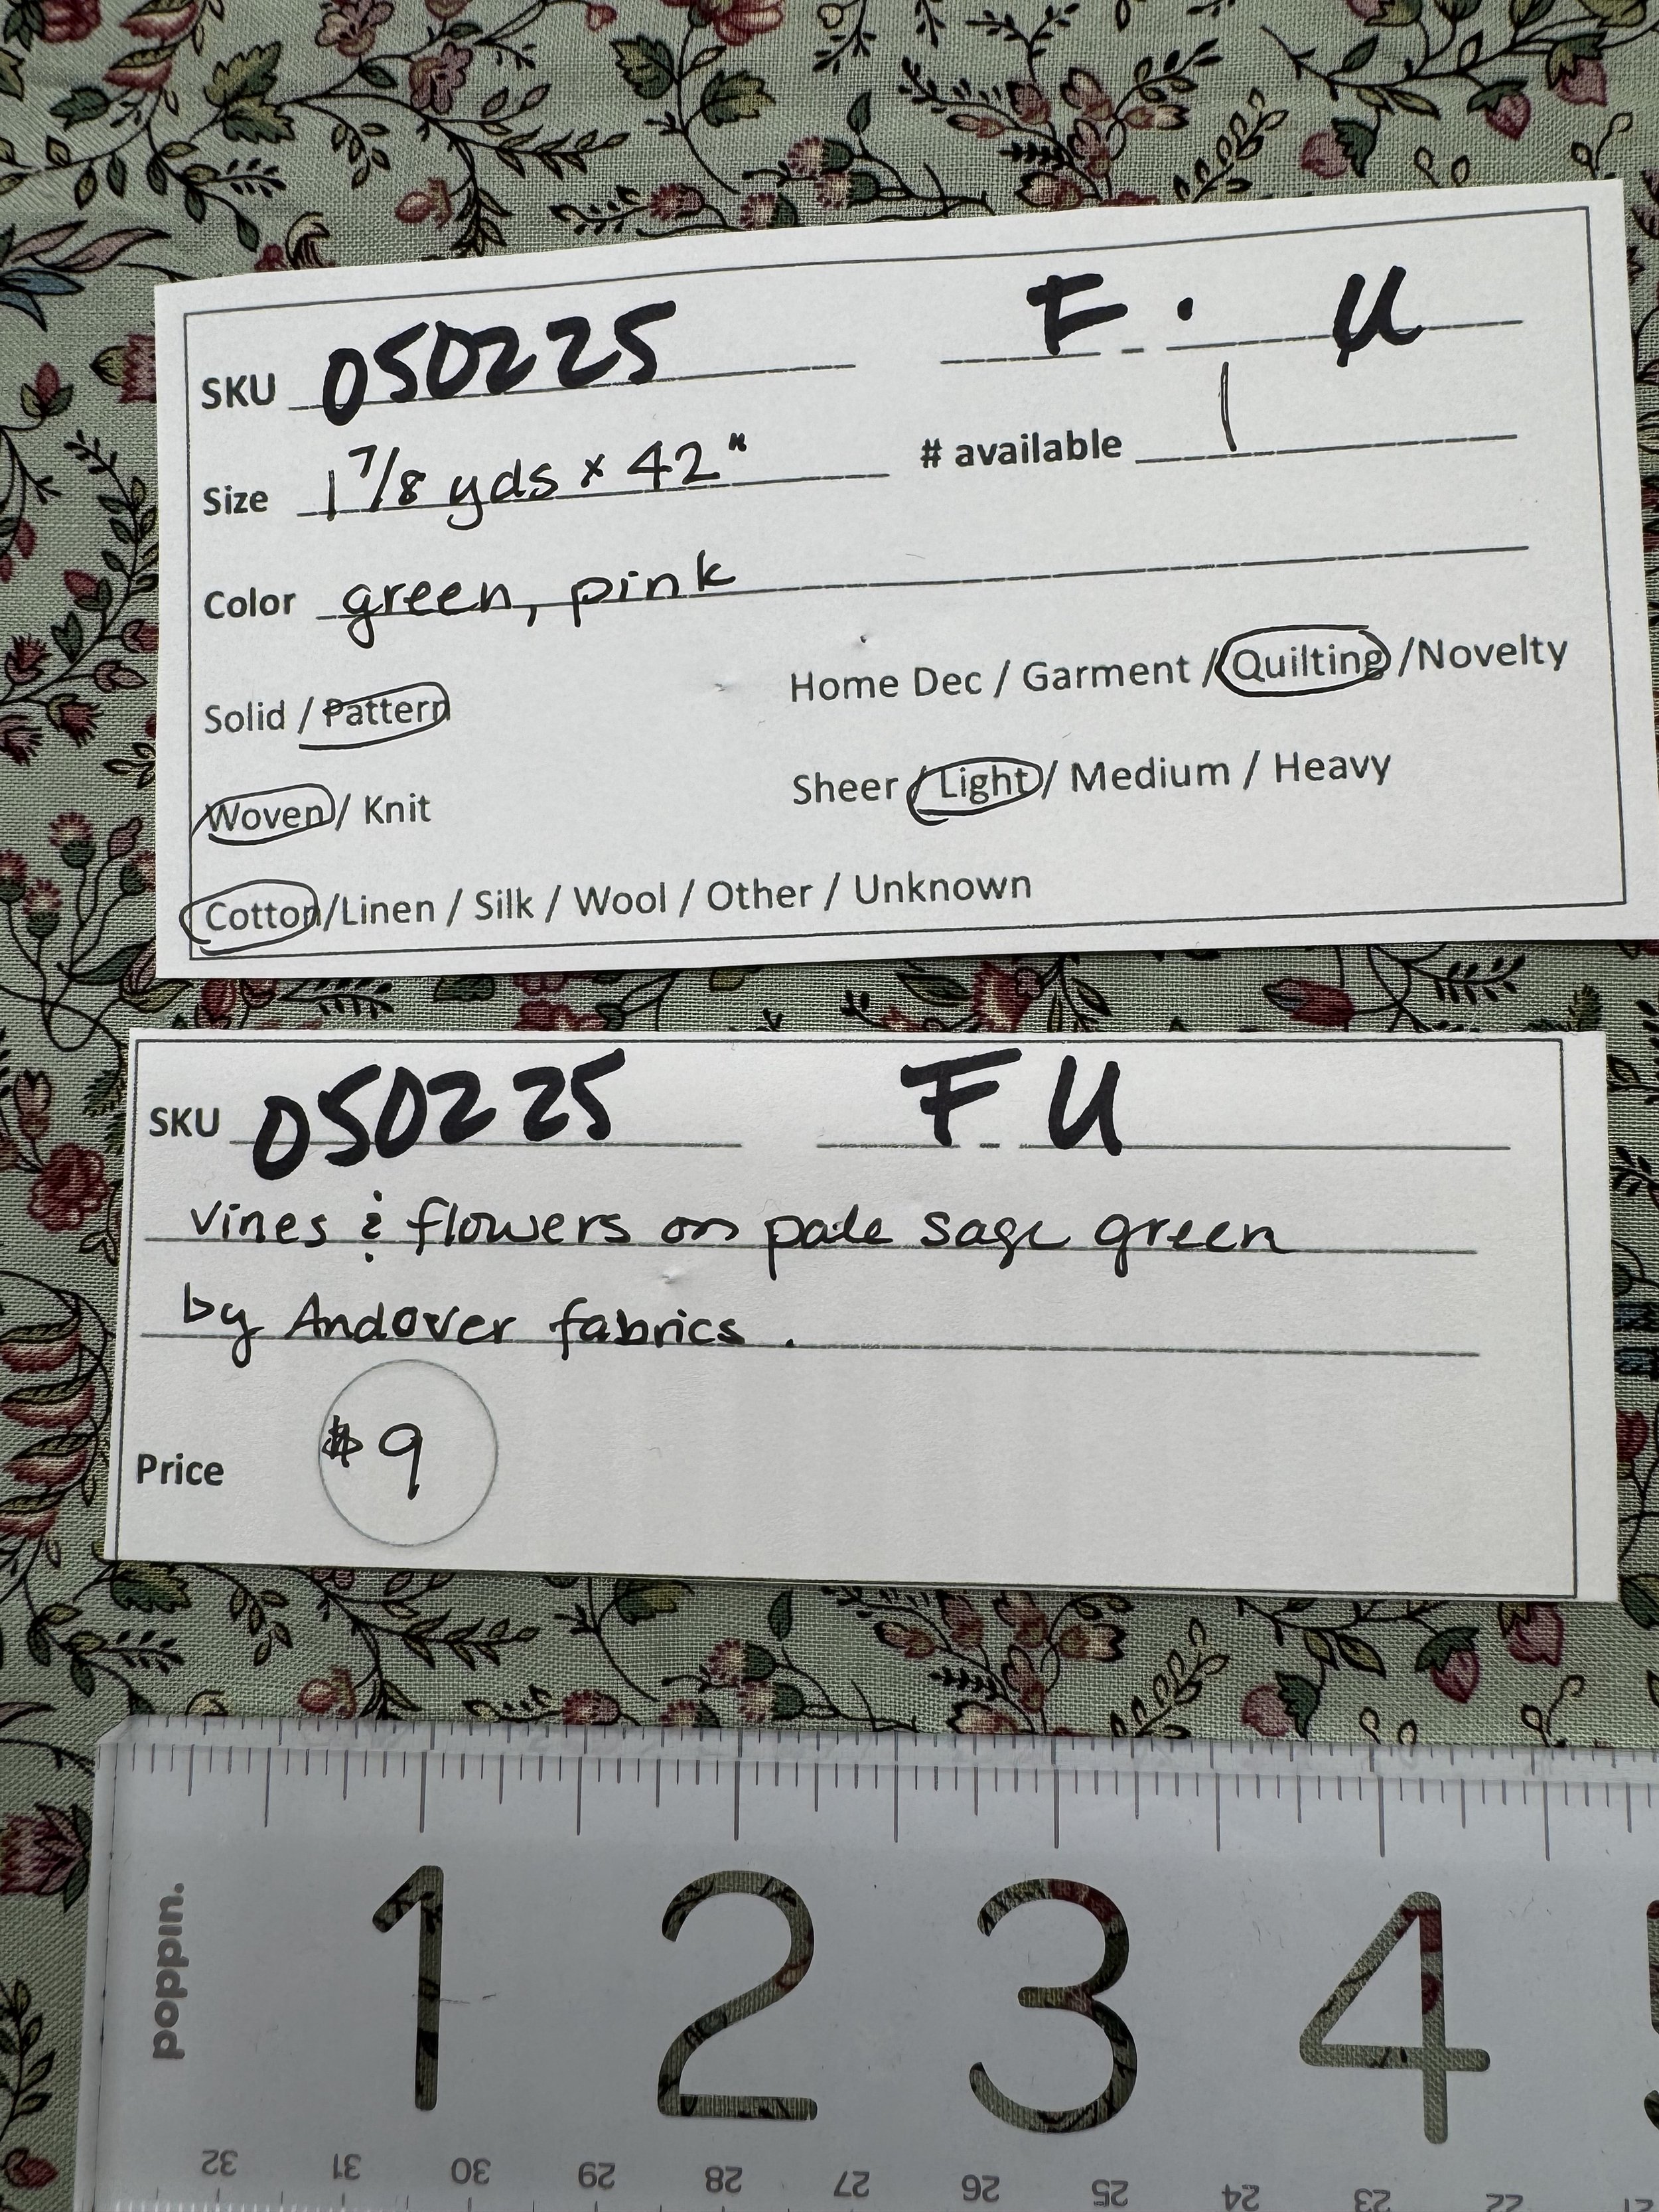 SKU 050225 F - . U
Size 1 7/8 yds x 42" # available 1
Color green, pink
Solid / Pattern Home Dec / Garment / Quilting / Novelty
Woven / Knit Sheer / Light / Medium / Heavy
Cotton/Linen / Silk / Wool / Other / Unknown
SKU 050225 F - U
vines & flowers on pale sage green
by Andover fabrics.
Price $9
poppin.
1 2 3 4
32 31 30 29 28 27 26 25 24 23 22 21